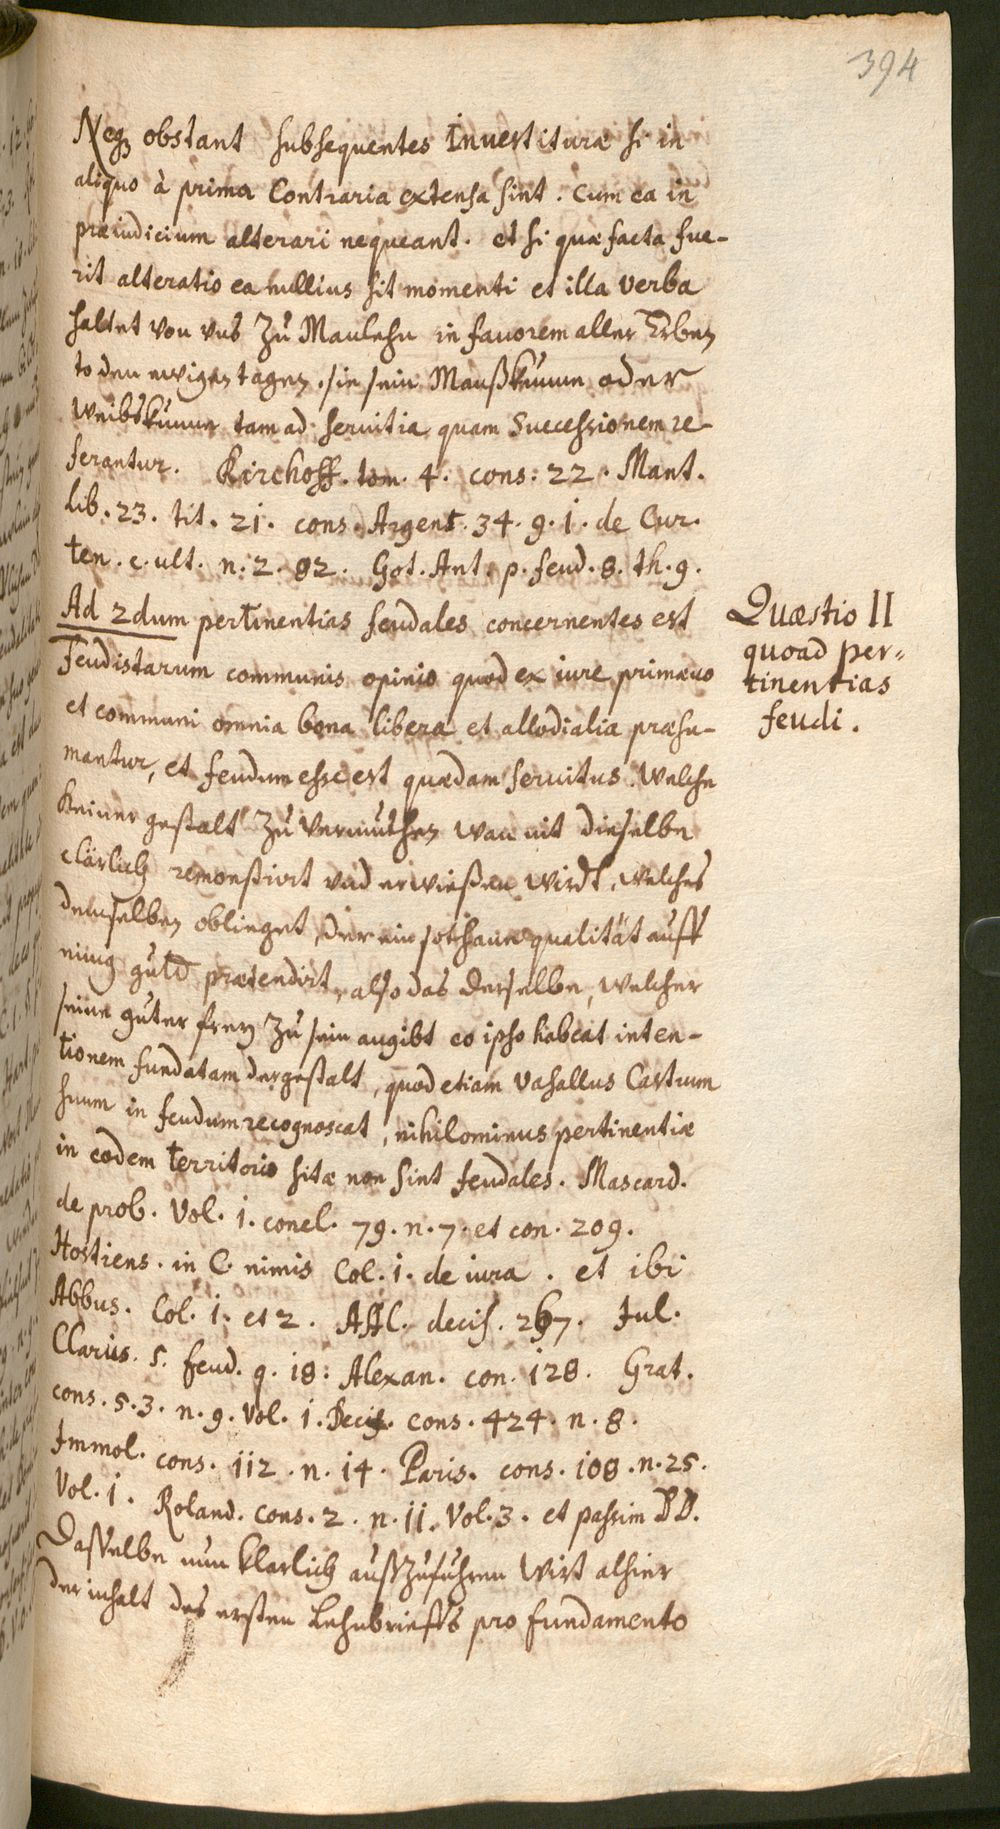 394
Neq3 obstant subsequentes Investituræ si in
aliquo à prima Contraria extensa sint. cum ea in
præiudicium alterari nequeant. et si quæ facta fue-
rit alteratio ea nullius sit momenti et illa verba
haltet von uns Zu Manlehn in fauorem aller Erben
to den ewigen tagen, sie sein Manßkunne oder
Weibskunne tam ad seruitia quam Successionem re-
ferantur. Kirchoff. tom. 4. cons: 22. Mant.
Lib. 23. tit. 21. cons. Argent. 34. q. 1. de Cur.
ten. c. ult. n. 2. 82. Got. Ant. p. feud. 8. th. 9.
Ad 2dum pertinentias feudales concernentes est
Feudistarum communis opinio quod ex iure primæuo
et communi omnia bona libera et allodialia præsu-
mantur, et feudum esse est quædam seruitus. Welche
keiner gestalt Zu Vermuthen wan nit dieselbe
clärlich remonstrirt und erwießen wirdt, welches
demselben oblieget, der ein sothane qualität auff
einig gutt prætendirt, also das derselbe, welcher
seine guter frey Zu sein angibt eo ipso habeat inten-
tionem fundatam dergestalt, quod etiam Vasallus Castrum
suum in feudum recognoscat, nihilominus pertinentiæ
in eodem territorio sitæ non sint feudales. Mascard.
de prob. Vol. 1. concl. 79. n. 7. et con. 209.
Hostiens. in C. nimis Col. 1. de iura. et ibi
Abbus. Col. 1. et 2. Affl. decis. 267. Jul.
Clarus. §. feud. q. 18: Alexan. con. 128. Grat.
cons. 5. 3. n. 9. Vol. 1. Decis. cons. 424. n. 8.
Immol. cons. 112. n. 14. Paris. cons. 108. n. 25.
Vol. 1. Roland. cons. 2. n. 11. Vol. 3. et passim DD.
Dasselbe nun klarlich außzufuhren wirt alhier
der inhalt des ersten Lehnbrieffs pro fundamento
Quæstio II
quoad per=
tinentias
feudi.